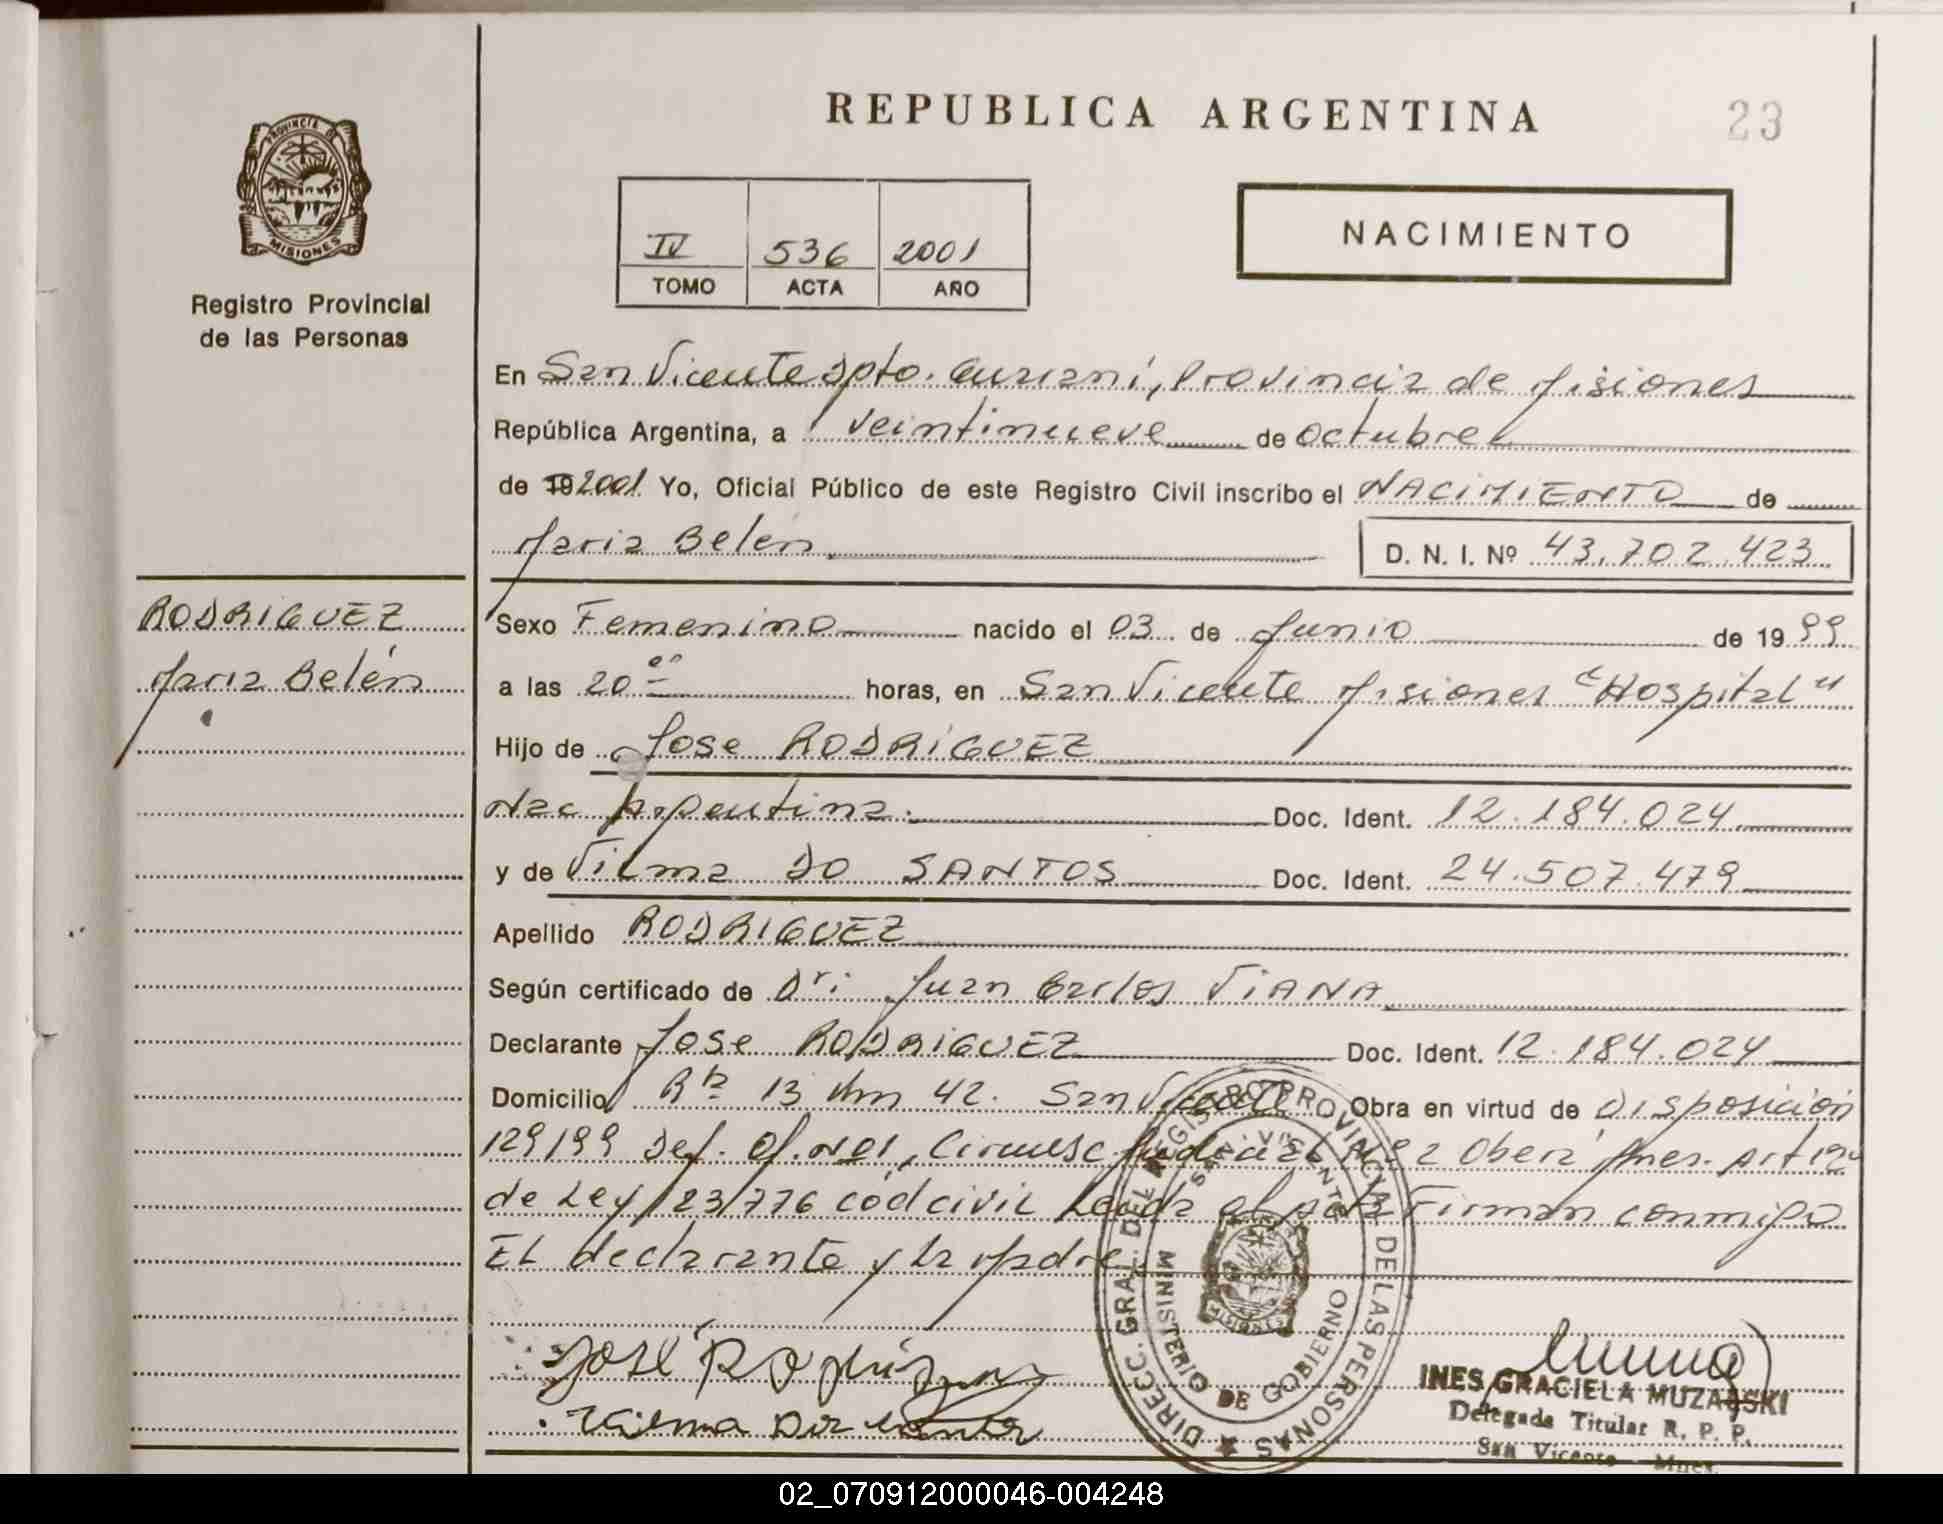 REPUBLICA ARGENTINA
23
PROVINCIA DE
MISIONES
Registro Provincial
de las Personas
IV 536 2001
TOMO ACTA AÑO
NACIMIENTO
En San Vicente Dpto. Guarani, Provincia de Misiones
República Argentina, a veintinueve de octubre
de 19 2001 Yo, Oficial Público de este Registro Civil inscribo el NACIMIENTO de
Maria Belén
D. N. I. Nº 43.702.423
RODRIGUEZ
Maria Belén
Sexo Femenino nacido el 03 de Junio de 19 99
a las 20 00 horas, en San Vicente Misiones "Hospital"
Hijo de Jose RODRIGUEZ
Nac Argentina. Doc. Ident. 12.184.024
y de Vilma DO SANTOS Doc. Ident. 24.507.479
Apellido RODRIGUEZ
Según certificado de Dr: Juan Carlos VIANA
Declarante Jose RODRIGUEZ Doc. Ident. 12.184.024
Domicilio Rta 13 Km 42. San Vicente Obra en virtud de Disposición
129/99 Def. Of. Nº 1, Circunsc Judicial Nº 2 Oberá Mnes. Art 12
de Ley 23/776 cód civil Leida el acta Firman conmigo
EL declarante y la Madre
DIRECC. GRAL. DEL REGISTRO PROVINCIAL DE LAS PERSONAS
SAN VICENTE
MINISTERIO DE GOBIERNO
MISIONES
José Rodríguez
Vilma Dos Santos
INES GRACIELA MUZALSKI
Delegada Titular R. P. P.
San Vicente - Mnes.
02_070912000046-004248